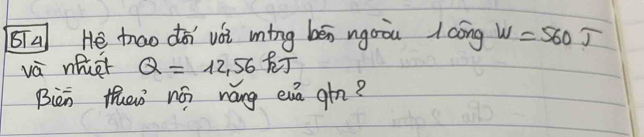 BT4 Hệ trao đổi với mtrg bên ngoài 1 công W = 560 J
và nhiệt Q = 12,56 kJ
Biến thiên nội năng của qtr?